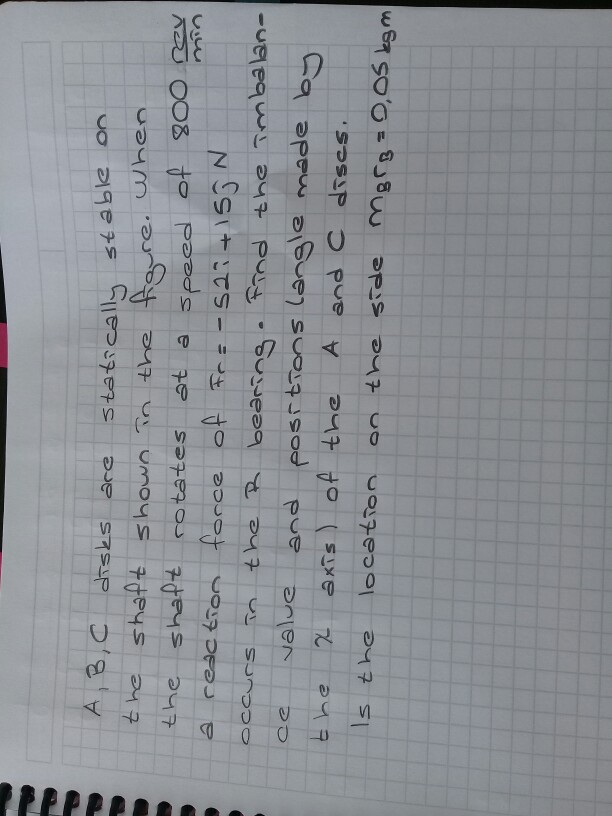 A, B, C disks are statically stable on
the shaft shown in the figure. When
the shaft rotates at a speed of 800 rev/min
a reaction force of Fr = -52i + 15j N
occurs in the R bearing. Find the imbalan-
ce value and positions (angle made by
the x axis) of the A and C discs.
Is the location on the side mBrB = 0,05 kgm